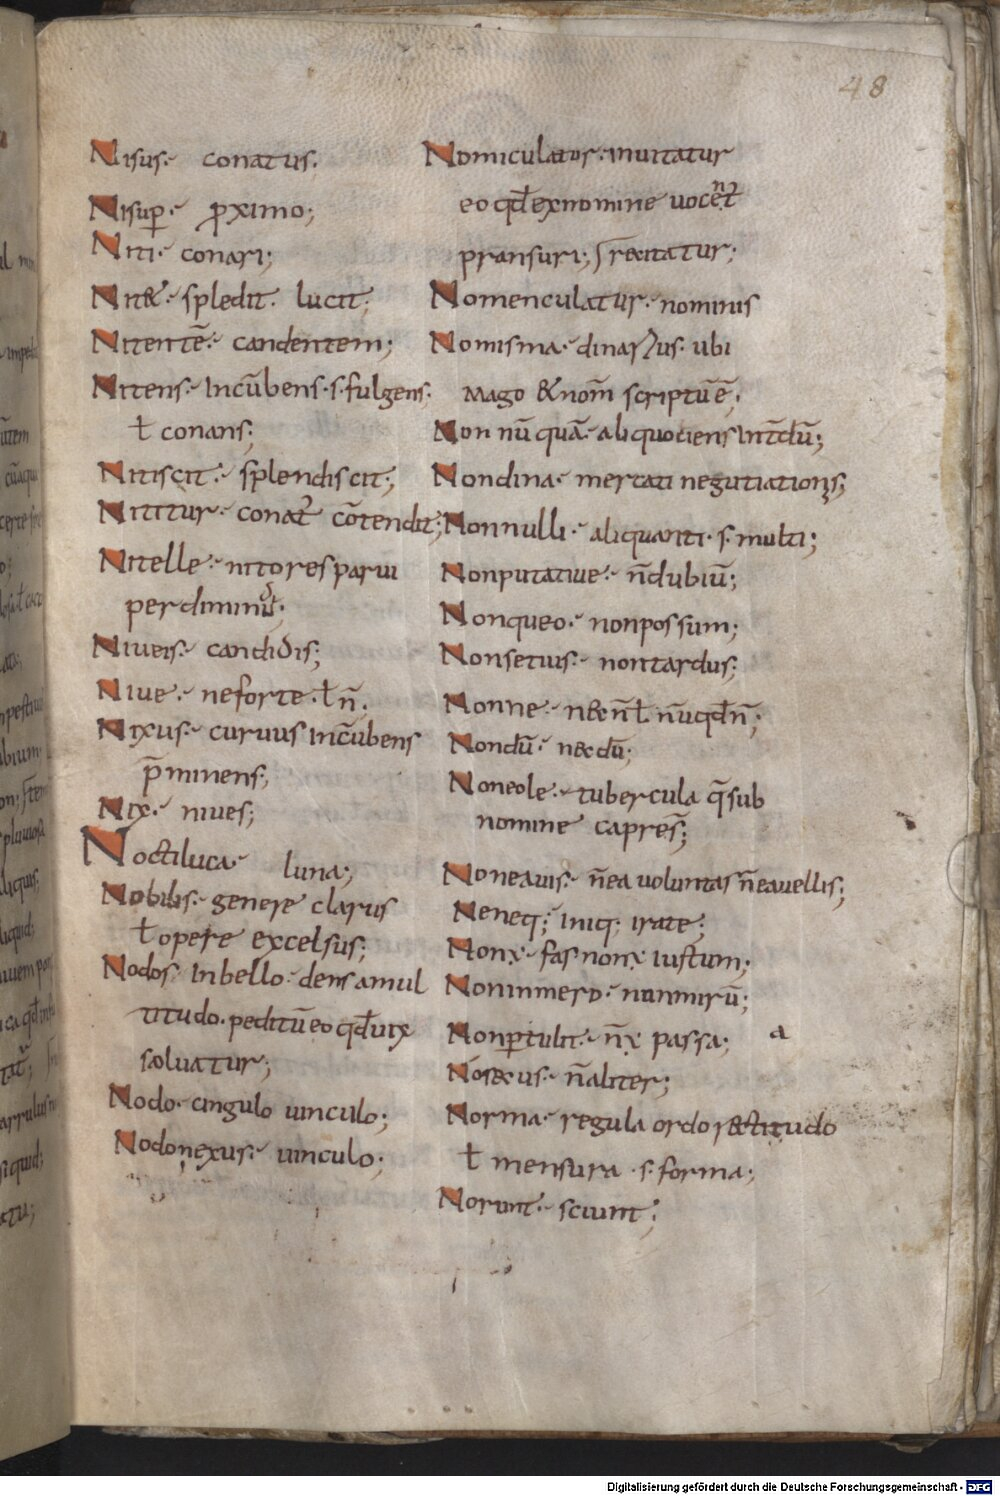 48
Nisus· conatus·
Nisup̱· ꝓximo;
Niti· conari;
Nit&· spledit· lucit;
Nitentē· candentem;
Nitens· Incūbens·s·fulgens;
ƚ conans;
Nitiscit· splendiscit;
Nititur· conat᷑ cōtendit;
Nitelle· nitores parui
per diminut;
Niueis· candidis;
Niue· neforte·ƚ n̄;
Nixus· curuus incūbens
p̄minens;
Nix· niues;
Noctiluca· luna;
Nobilis· genere clarus
ƚ opere excelsus;
Nodos· Inbello· densa mul
titudo· peditū eo qđ uix
soluatur;
Nodo· cingulo uinculo;
Nodonexus· uinculo;
Nomiculator· inuitatur
eo qđ ex nomine uocent᷑
pransuri; recitatur;
Nomenculatur· nominis
Nomisma· dinarius· ubi
mago & nom̄ scriptū ē;
Non nū quā· aliquotiens int̄dū;
Nondina· mercati negutiationis;
Nonnulli· aliquanti· s· multi;
Nonputatiue· n̄dubiū;
Nonqueo· nonpossum;
Nonsetuis· nontardus;
Nonne· necn̄ƚ nūqđn̄;
Nondū· necdū;
Noneole· tubercula q̄ sub
nomine capres̄;
Noneauis· n̄ea uoluntas n̄eauellis;
Neneq; iniq; irate;
Nonx· fas nonx iustum;
Noninmero· nunmirū;
Nonptulit· n̄x passa; a
Nósecus· n̄aliter;
Norma· regula ordo rectitudo
ƚ mensura ·s·forma;
Norunt· sciunt;
Digitalisierung gefördert durch die Deutsche Forschungsgemeinschaft - DFG